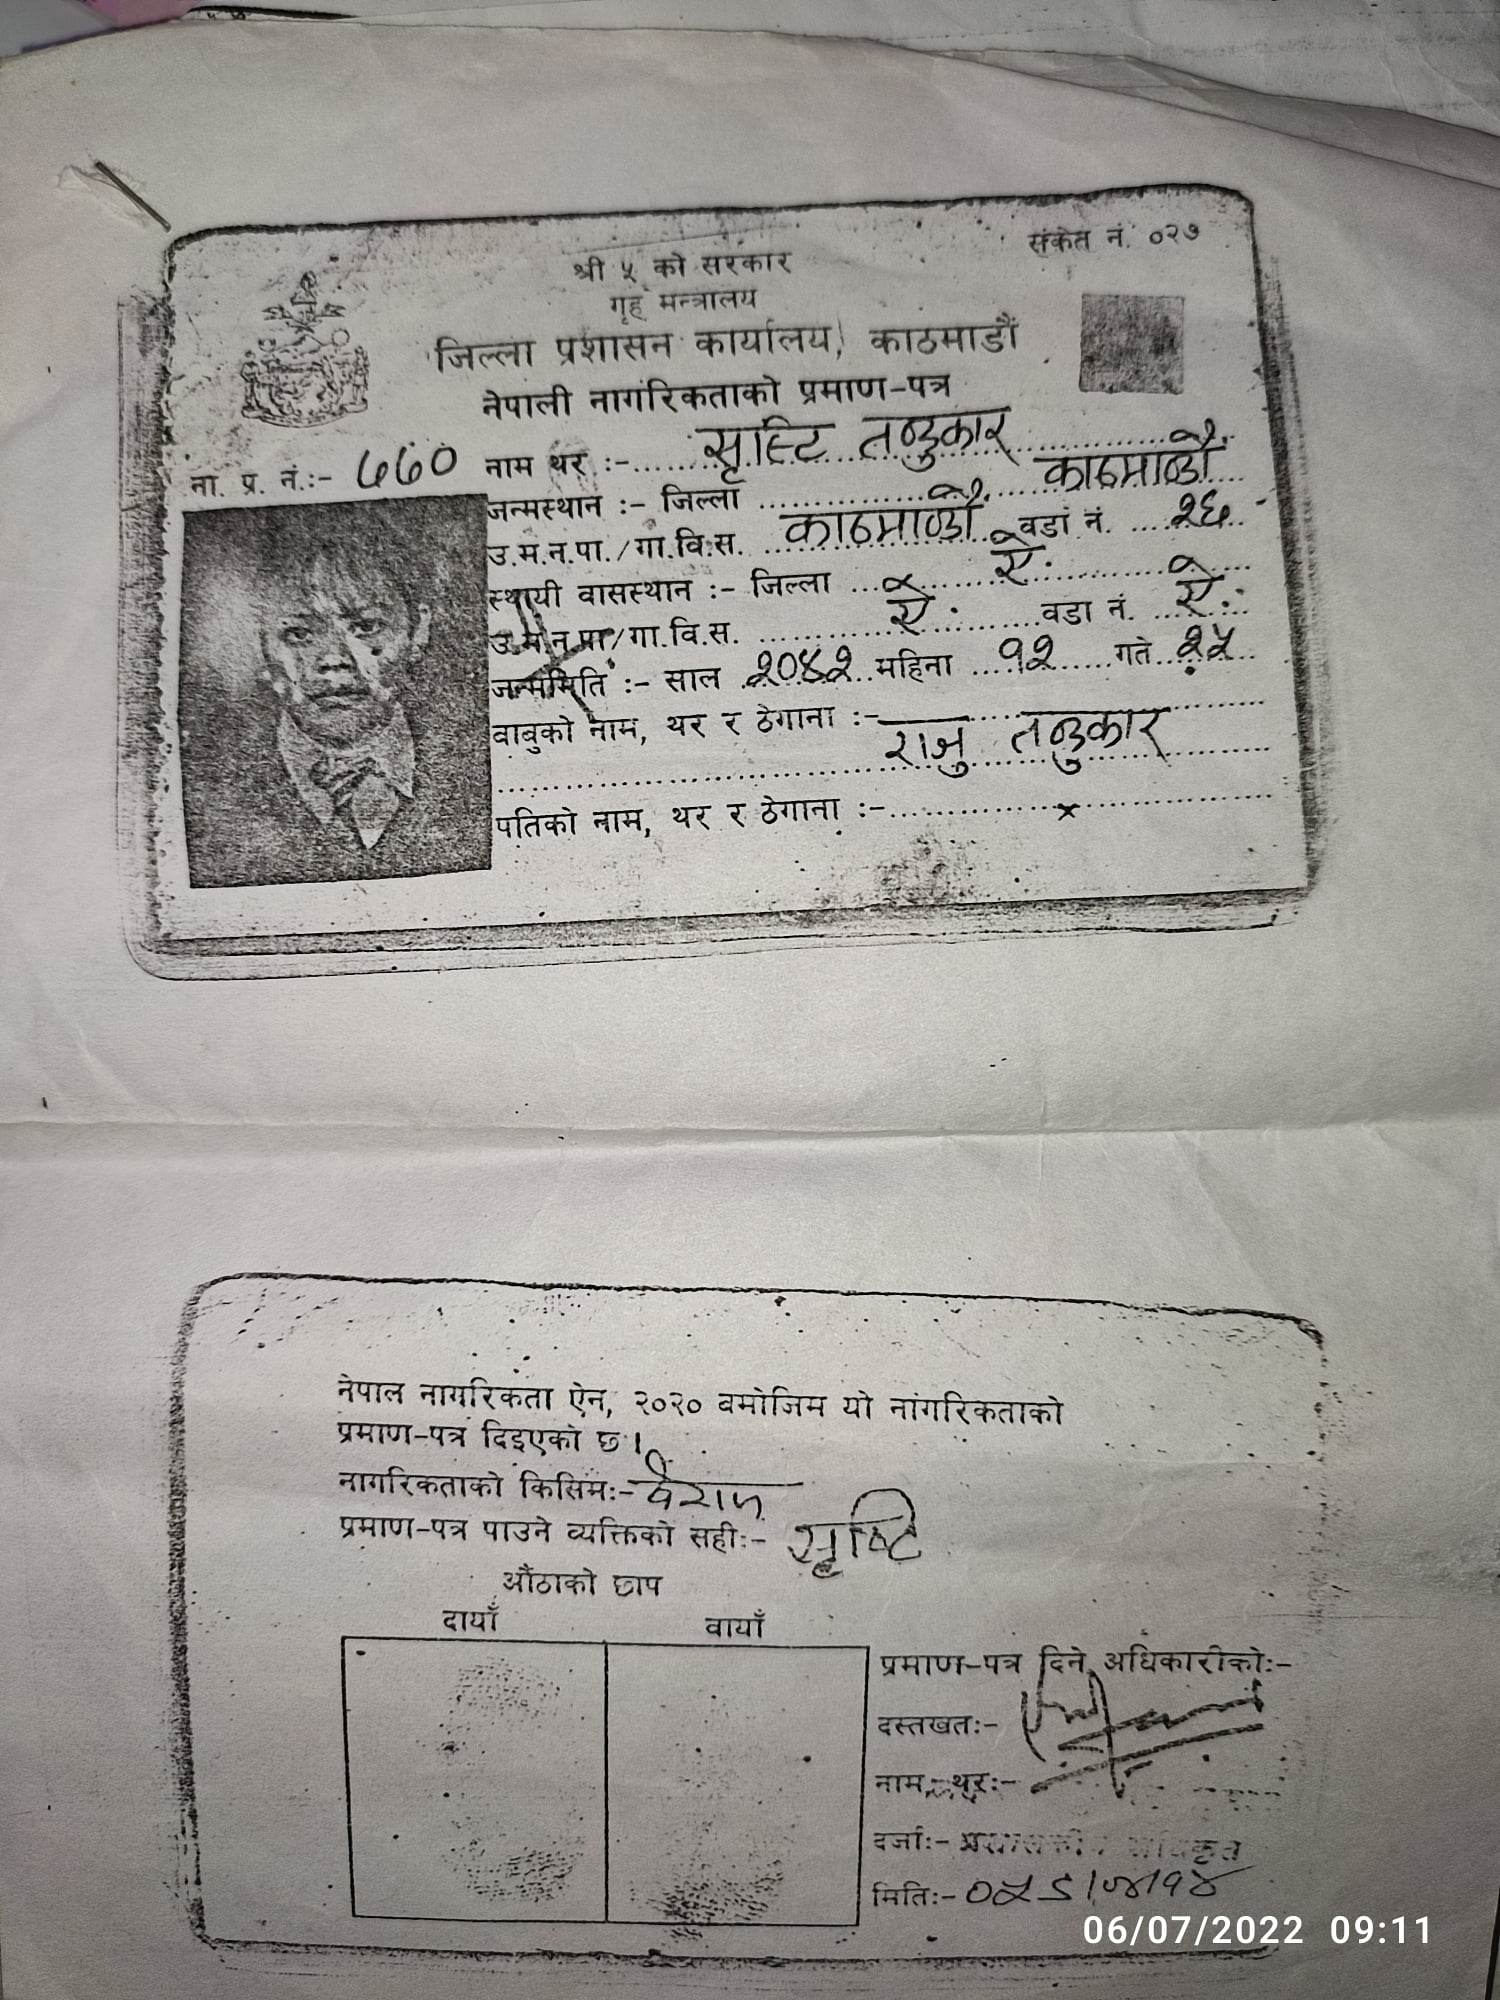 संकेत नं. ०२७
श्री ५ को सरकार
गृह मन्त्रालय
जिल्ला प्रशासन कार्यालय, काठमाडौं
नेपाली नागरिकताको प्रमाण-पत्र
ना. प्र. नं.:- ७७०
नाम थर :- सृष्टि तण्डुकार
जन्मस्थान :- जिल्ला काठमाण्डौं
उ.म.न.पा./गा.वि.स. काठमाण्डौं वडा नं. २६
स्थायी वासस्थान :- जिल्ला ऐ.
उ.म.न.पा/गा.वि.स. ऐ. वडा नं. ऐ.
जन्ममिति :- साल २०४२ महिना १२ गते २५
बाबुको नाम, थर र ठेगाना :- राजु तण्डुकार
पतिको नाम, थर र ठेगाना :- x
नेपाल नागरिकता ऐन, २०२० बमोजिम यो नागरिकताको
प्रमाण-पत्र दिइएको छ।
नागरिकताको किसिमः- वंशज
प्रमाण-पत्र पाउने व्यक्तिको सहीः- सृष्टि
औंठाको छाप
दायाँ बायाँ
प्रमाण-पत्र दिने अधिकारीकोः-
दस्तखतः-
नाम-थरः-
दर्जाः-
मितिः-
06/07/2022 09:11